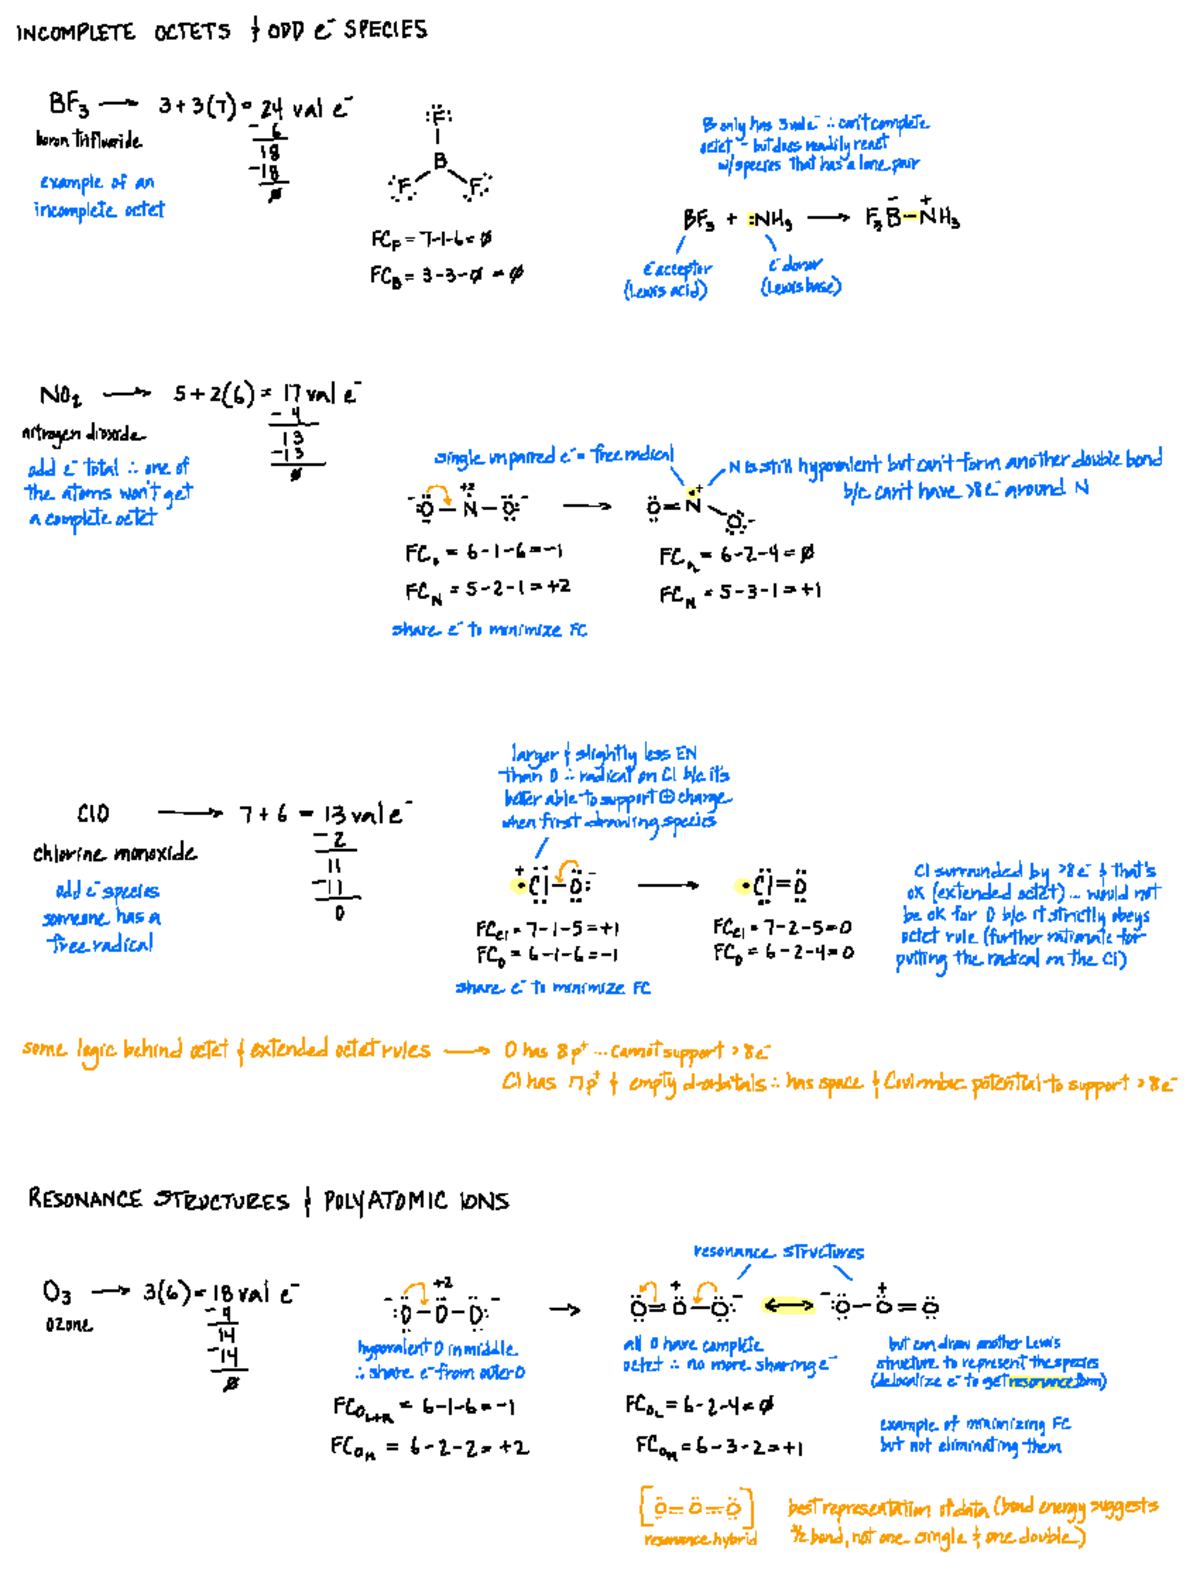 INCOMPLETE OCTETS & ODD e⁻ SPECIES
BF₃ → 3+3(7) = 24 val e⁻
boron trifluoride
- 6
18
-18
Ø
example of an
incomplete octet
:F:
B
F F
FC_F = 7-1-6 = Ø
FC_B = 3-3-Ø = Ø
B only has 3 val e⁻ ∴ can't complete
octet - but does readily react
w/ species that has a lone pair
BF₃ + :NH₃ → F₃B⁻-N⁺H₃
e⁻ acceptor
(Lewis acid)
e⁻ donor
(Lewis base)
NO₂ → 5+2(6) = 17 val e⁻
nitrogen dioxide
- 4
13
-13
Ø
odd e⁻ total ∴ one of
the atoms won't get
a complete octet
single unpaired e⁻ = free radical
N is still hypovalent but can't form another double bond
b/c can't have >8e⁻ around N
⁻:O-N-O:⁻ → O=N-O:⁻
+2
+
FC₀ = 6-1-6 = -1
FC_N = 5-2-1 = +2
share e⁻ to minimize FC
FC = 6-2-4 = Ø
FC_N = 5-3-1 = +1
larger & slightly less EN
than O ∴ radical on Cl b/c it's
better able to support ⊕ charge
when first drawing species
ClO → 7+6 = 13 val e⁻
chlorine monoxide
- 2
11
-11
0
odd e⁻ species
someone has a
free radical
+
•Cl-O:⁻ → •Cl=O
FC_Cl = 7-1-5 = +1
FC_O = 6-1-6 = -1
share e⁻ to minimize FC
FC_Cl = 7-2-5 = 0
FC_O = 6-2-4 = 0
Cl surrounded by >8e⁻ & that's
ok (extended octet)... would not
be ok for O b/c it strictly obeys
octet rule (further rationale for
putting the radical on the Cl)
some logic behind octet & extended octet rules → O has 8p⁺ ... cannot support >8e⁻
Cl has 17p⁺ & empty d-orbitals ∴ has space & Coulombic potential to support >8e⁻
RESONANCE STRUCTURES & POLYATOMIC IONS
resonance structures
O₃ → 3(6) = 18 val e⁻
ozone
- 4
14
-14
Ø
+2
⁻:O-O-O:⁻ → O=O-O:⁻ ↔ ⁻:O-O=O
+
+
hypovalent O in middle
∴ share e⁻ from outer O
FC_O L+R = 6-1-6 = -1
FC_O M = 6-2-2 = +2
all O have complete
octet ∴ no more sharing e⁻
FC_O L = 6-2-4 = Ø
FC_O M = 6-3-2 = +1
but can draw another Lewis
structure to represent the species
(delocalize e⁻ to get resonance form)
example of minimizing FC
but not eliminating them
[O=O=O]
resonance hybrid
best representation of data (bond energy suggests
3/2 bond, not one single & one double)